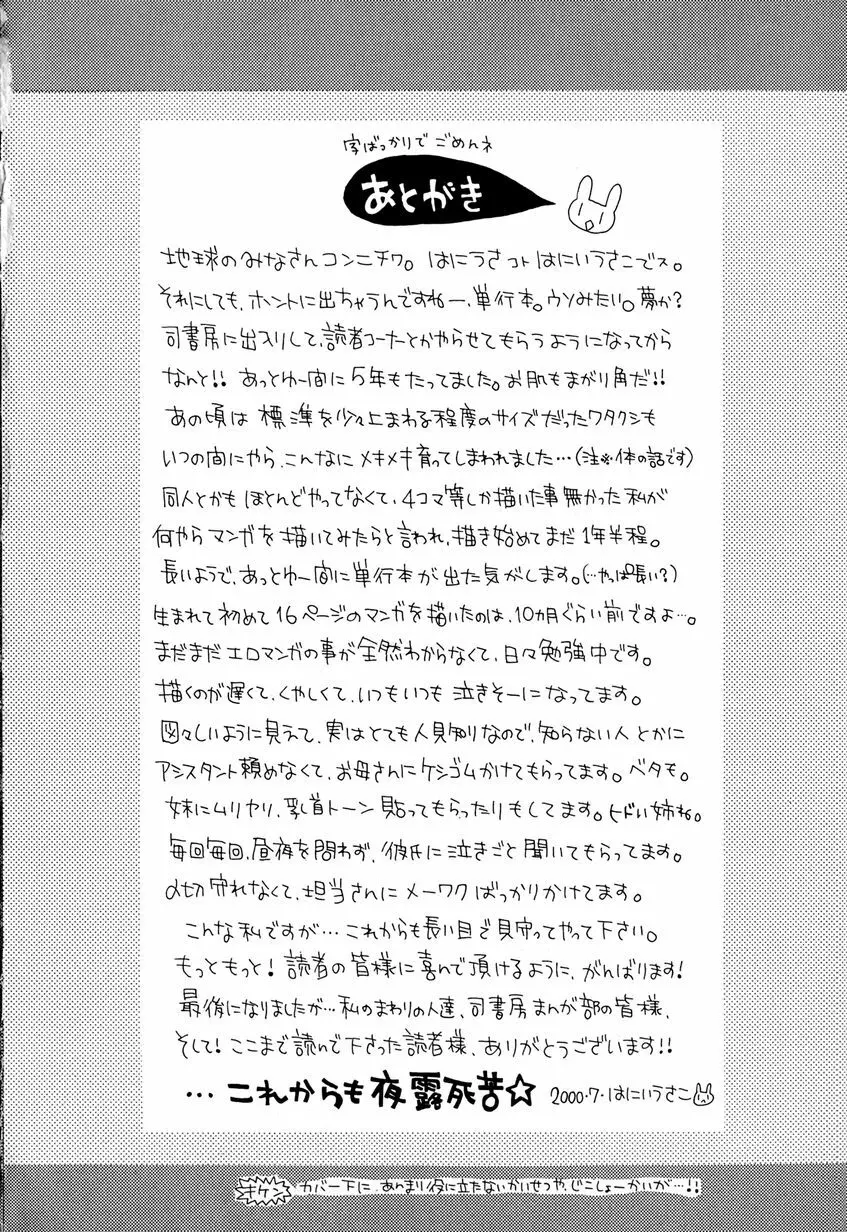 字ばっかりで ごめんネ
あとがき
地球のみなさんコンニチワ。はにうさコト はにいうさこでス。
それにしても、ホントに出ちゃうんですねー、単行本。ウソみたい。夢か?
司書房に出入りして、読者コーナーとかやらせてもらうようになってから
なんと!! あっとゆー間に5年もたってました。お肌もまがり角だ!!
あの頃は 標準を少々上まわる程度のサイズだったワタクシも
いつの間にやら、こんなに メキメキ育ってしまわれました…(注※体の話です)
同人とかも ほとんどやってなくて、4コマ等しか描いた事無かった私が
何やら マンガを描いてみたらと言われ、描き始めてまだ1年半程。
長いようで、あっとゆー間に単行本が出た気がします。(…やっぱ長い?)
生まれて初めて16ページのマンガを描いたのは、10カ月ぐらい前ですよ…。
まだまだ エロマンガの事が全然わからなくて、日々勉強中です。
描くのが遅くて、くやしくて、いつもいつも 泣きそーになってます。
図々しいように見えて、実はとても人見知りなので、知らない人とかに
アシスタント頼めなくて、お母さんにケシゴムかけてもらってます。ベタも。
妹にムリヤリ、乳首トーン貼ってもらったりもしてます。ヒドい姉ね。
毎回毎回、昼夜を問わず、彼氏に泣きごと聞いてもらってます。
〆切守れなくて、担当さんにメーワクばっかりかけてます。
こんな私ですが… これからも長い目で見守ってやって下さい。
もっともっと! 読者の皆様に喜んで頂けるように、がんばります!
最後になりましたが…私のまわりの人達、司書房まんが部の皆様、
そして! ここまで読んで下さった読者様、ありがとうございます!!
… これからも夜露死苦☆ 2000・7・はにいうさこ
キケン カバー下に、あんまり役に立たないかいせつや、じこしょーかいが…!!